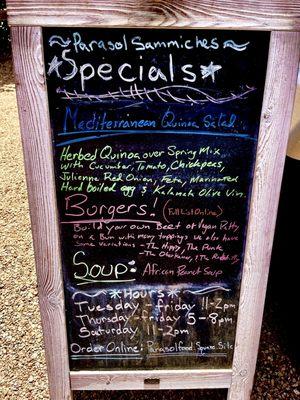 Parasol Sammiches
Specials
Mediterranean Quinoa Salad
Herbed Quinoa over Spring Mix
with Cucumber, Tomato, Chickpeas,
Julienne Red Onion, Feta, Marinated
Hard boiled egg & Kalamata Olive Vin.
Burgers! (Full List Online)
Build your own Beef or Vegan Patty
on a Bun with many toppings we also have
Some variations - The Hippy, The Punk,
The &
Soup: African Peanut Soup
*Hours*
Tuesday - Friday 11-2pm
Thursday - Friday 5-8pm
Saturday 11-2pm
Order Online: Parasolfood.Square.Site